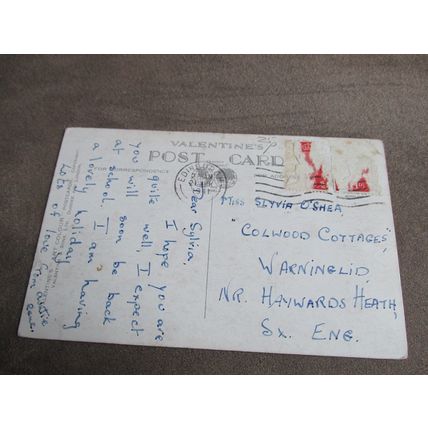 VALENTINE'S
POST CARD
FOR CORRESPONDENCE
Dear Sylvia,
I hope you are
quite well, I expect
you will soon be back
at school. I am having
a lovely holiday
lots of love from
MISS SLYVIA O'SHEA,
"COLWOOD COTTAGES",
WARNINGLID,
NR. HAYWARDS HEATH
SX. ENG.